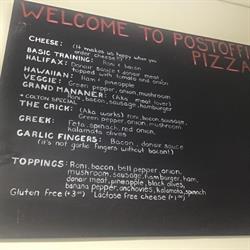 WELCOME TO POSTOFF
PIZZA
CHEESE: (it makes us happy when you
order cheese!)
BASIC TRAINING: Roni & bacon
HALIFAX: Donair sauce & donair meat,
topped with tomato and onion
HAWAIIAN: Ham & pineapple
VEGGIE: Green pepper, onion, mushroom
GRAND MANANER: (Aka meat lover)
"COLTON SPECIAL" Roni, bacon, sausage, hamburger
THE CRICK: (Aka works) roni, bacon, sausage,
Green pepper, onion, mushroom
GREEK: Feta, spinach, red onion,
kalamata olives
GARLIC FINGERS: Bacon, donair sauce
(it's not garlic fingers without bacon!)
TOPPINGS: Roni, bacon, bell pepper, onion,
mushroom, sausage, hamburger, ham,
donair meat, pineapple, black olives,
banana pepper, anchovies, kalamata, spinach
Gluten free Lactose free cheese